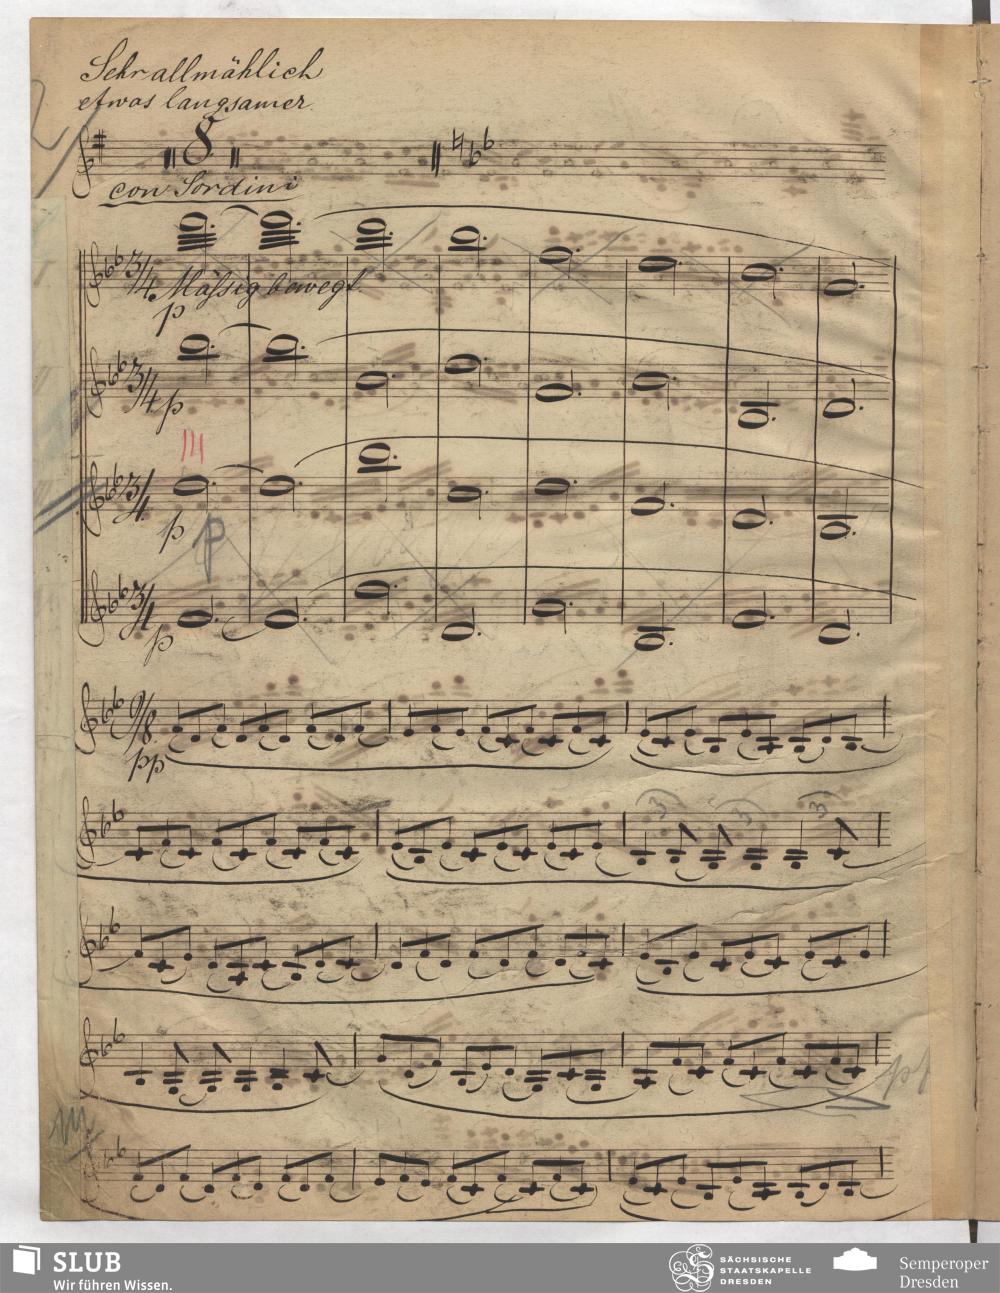 Sehr allmählich
etwas langsamer.
8
con Sordini
3/4 Mässig bewegt.
p
3/4 p
III
3/4 p p
3/4 p
9/8
pp
3 3 3
pp
SLUB
Wir führen Wissen.
SÄCHSISCHE
STAATSKAPELLE
DRESDEN
Semperoper
Dresden